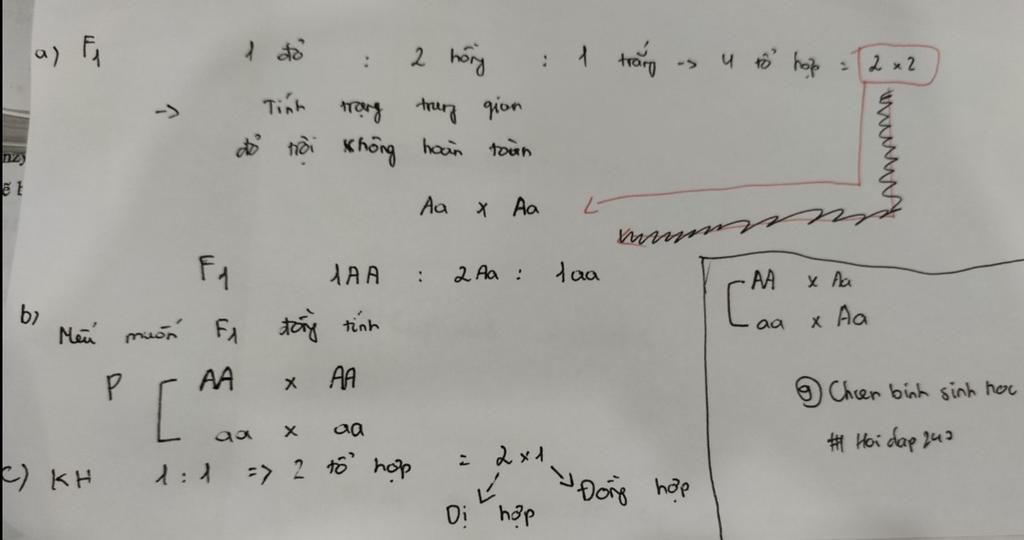 a) F1 1 đỏ : 2 hồng : 1 trắng -> 4 tổ hợp = 2 x 2
-> Tính trạng trung gian
đỏ trội không hoàn toàn
Aa x Aa
F1 1AA : 2Aa : 1aa
b) Nếu muốn F1 đồng tính
P AA x AA
aa x aa
c) KH 1 : 1 => 2 tổ hợp = 2 x 1
Dị hợp
Đồng hợp
AA x Aa
aa x Aa
@ Chuen binh sinh hoc
# Hoi dap 247